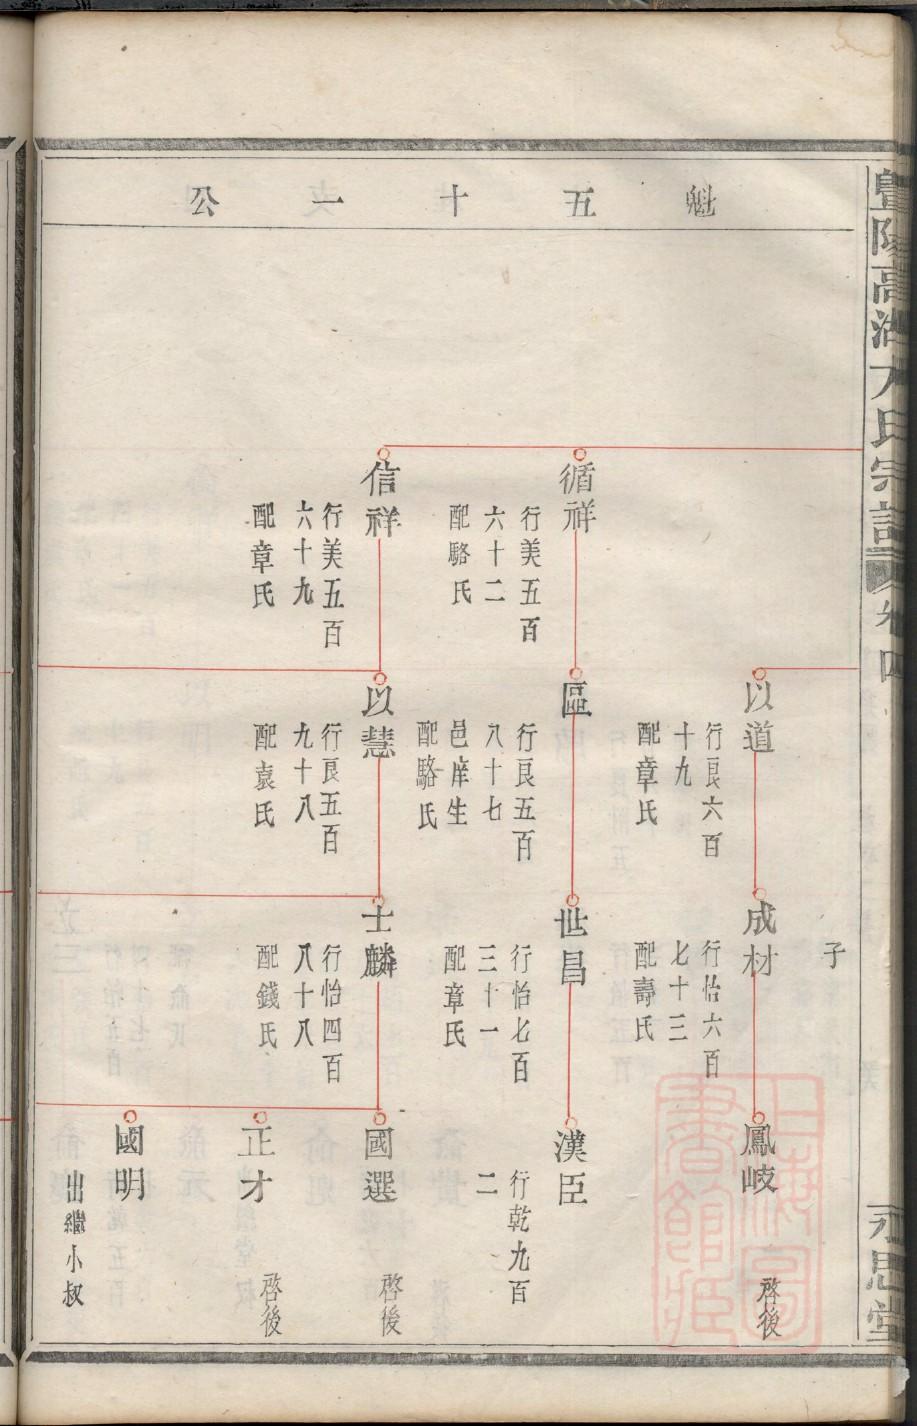 暨陽高湖方氏宗譜 卷四
永思堂
魁五十一公
循祥
行美五百
六十二
配駱氏
信祥
行美五百
六十九
配章氏
以道
行艮六百
十九
配章氏
區
行艮五百
八十七
邑庠生
配駱氏
以慧
行艮五百
九十八
配袁氏
子
成材
行怡六百
七十三
配壽氏
世昌
行怡七百
三十一
配章氏
士麟
行怡四百
八十八
配錢氏
鳳岐
啓後
漢臣
行乾九百
二
國選
啓後
正才
啓後
國明
出繼小叔
上海圖書館藏